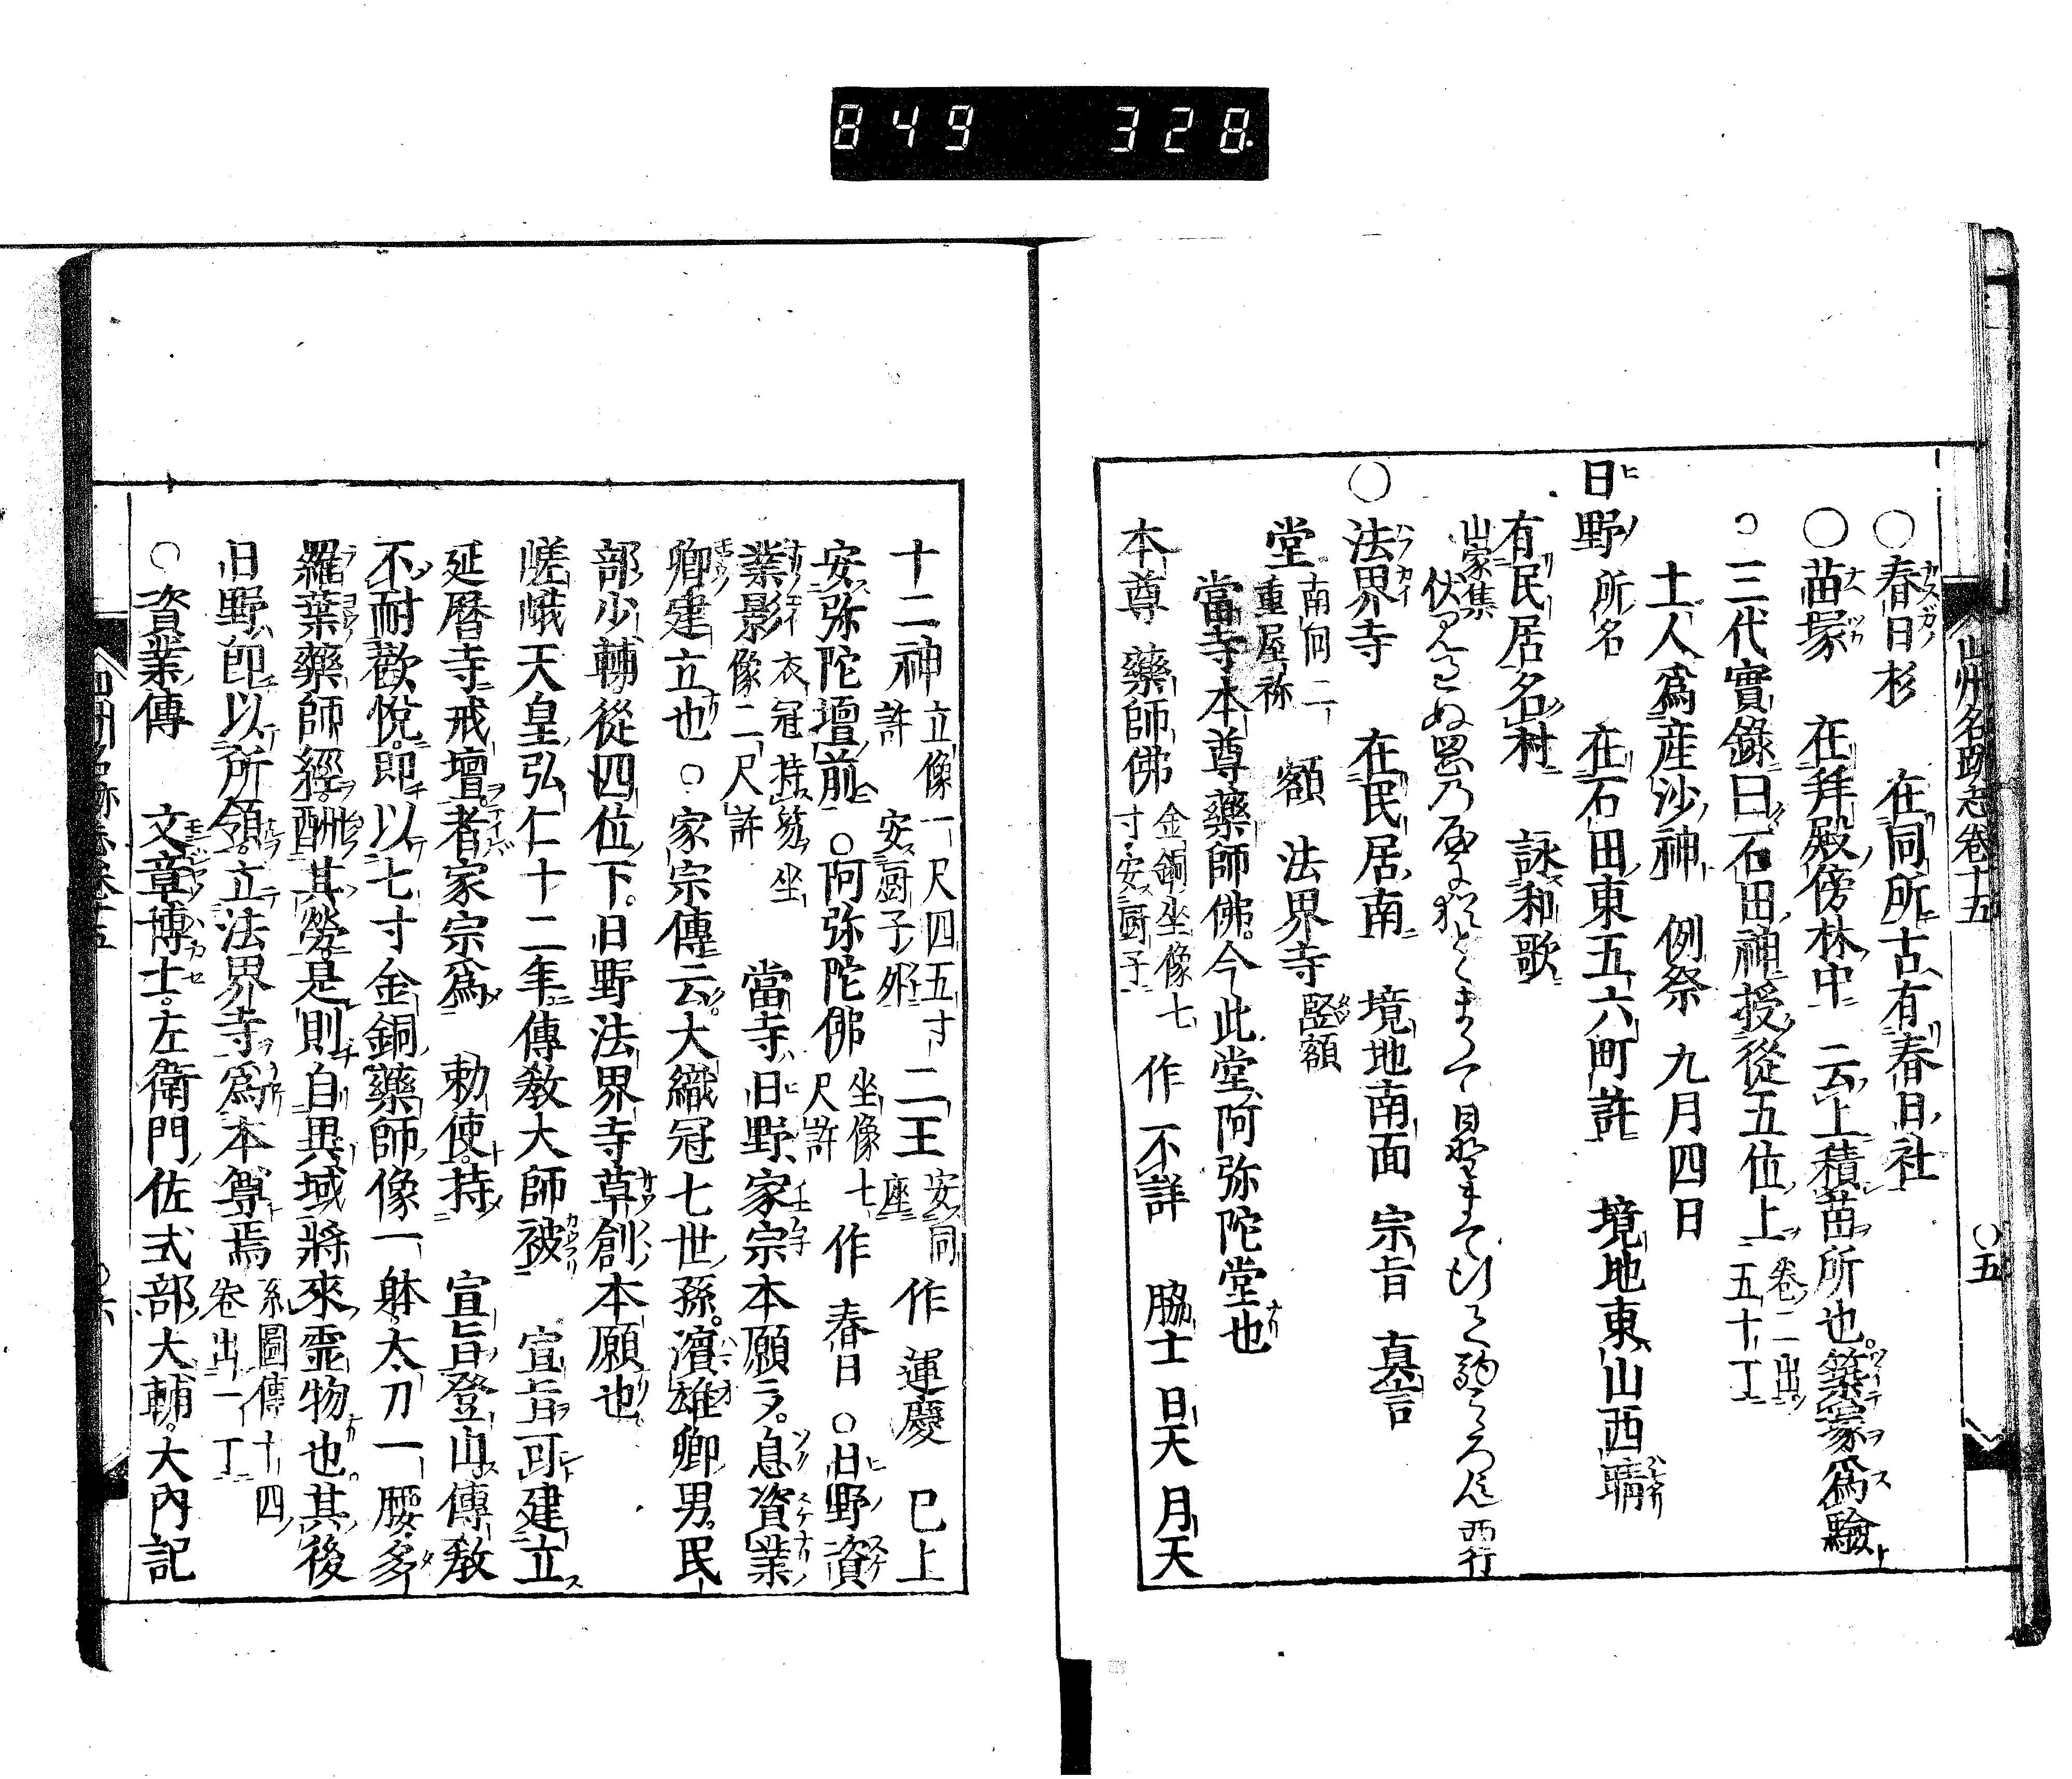 849 328
山州名跡志卷十五 ○五
○春日杉 在同所古有春日社
○苗塚 在拜殿傍林中 云上積苗所也。築冢爲驗
○三代實錄曰石田神授從五位上 卷二出
五十丁
土人爲産沙神 例祭 九月四日
日野 所名 在石田東五六町許 境地東山西晴
有民居名村 詠和歌
山家集
西行
○法界寺 在民居南 境地南面 宗旨 真言
堂 南向二
重屋祢 額 法界寺 竪額
當寺本尊藥師佛。今此堂阿弥陀堂也
本尊 藥師佛 金銅坐像七
寸安厨子 作 不詳 脇士 日天 月天
十二神 立像一尺四五寸
許 安厨子外 二王 安同
座 作 運慶 已上
安弥陀壇前 ○阿弥陀佛 坐像七
尺許 作 春日 ○日野資
業影 衣冠持笏坐
像二尺許 當寺日野家宗本願ヲ。息資業
卿建立也 ○家宗傳云。大織冠七世孫。濱雄卿男。民
部少輔。從四位下。日野法界寺草創本願也
嵯峨天皇弘仁十二年傳教大師被 宣旨可建立
延曆寺戒壇。者家宗爲 勅使。持 宣旨登山。傳教
不耐歡悅。即以七寸金銅藥師像一躰。太刀一腰。多
羅葉藥師經。酬其勞。是則自異域將來霊物也。其後
日野即以所領。立法界寺爲本尊焉 系圖傳十四
卷出一丁
○資業傳 文章博士。左衛門佐式部大輔。大內記